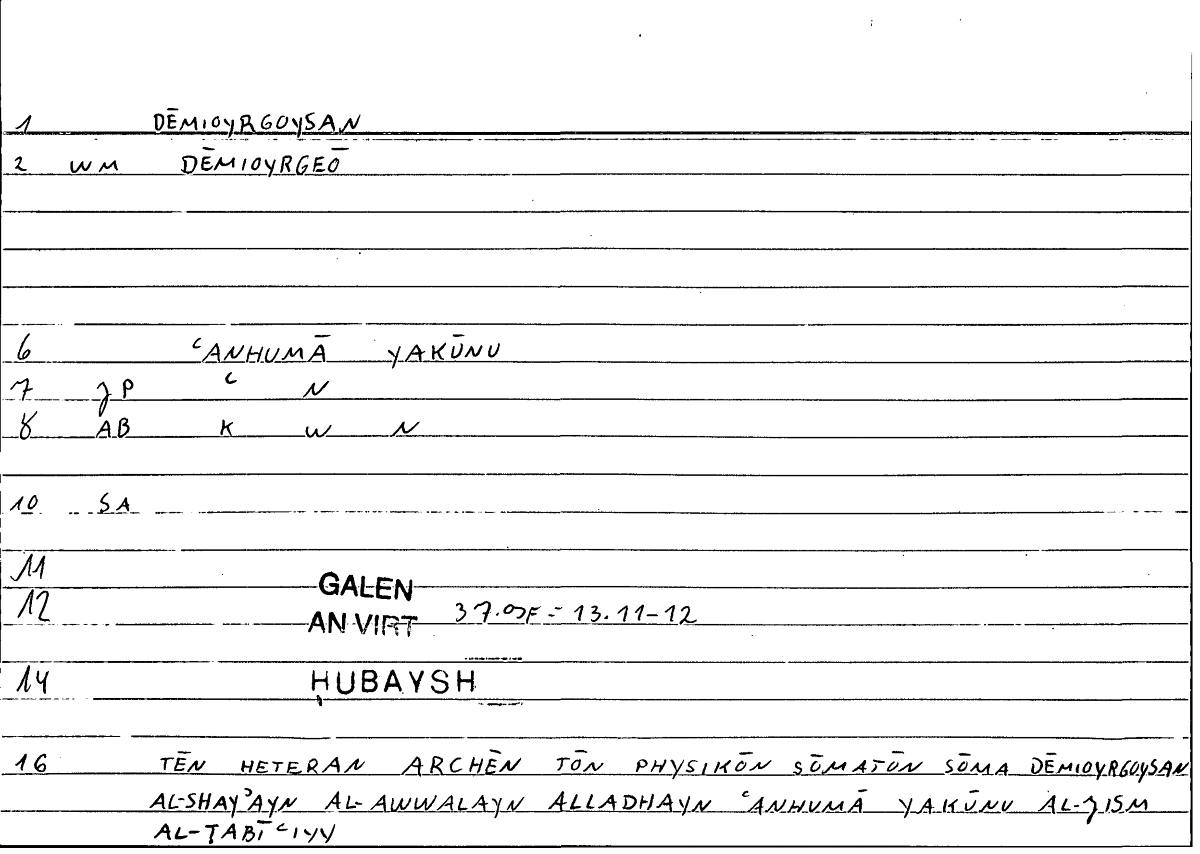 1 DĒMIOYRGOYSAN
2 WM DĒMIOYRGEŌ
6 ʿANHUMĀ YAKŪNU
7 JP ʿ N
8 AB K W N
10 SA
11 GALEN
12 AN VIRT 37. = 13.11-12
14 ḤUBAYSH
16 TĒN HETERAN ARCHĒN TŌN PHYSIKŌN SŌMATŌN SŌMA DĒMIOYRGOYSAN
AL-SHAYʾAYN AL-AWWALAYN ALLADHAYN ʿANHUMĀ YAKŪNU AL-JISM
AL-ṬABĪʿIYY